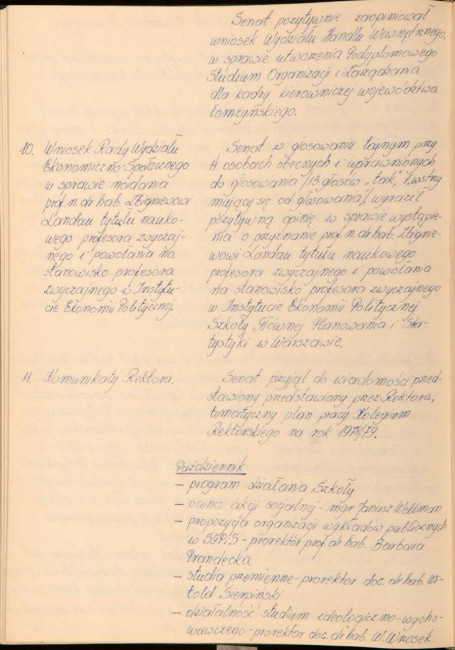 Senat pozytywnie zaopiniował
wniosek Wydziału Handlu Wewnętrznego
w sprawie utworzenia Podyplomowego
Studium Organizacji i Zarządzania
dla kadry kierowniczej województwa
łomżyńskiego.
10. Wniosek Rady Wydziału
Ekonomiczno-Społecznego
w sprawie nadania
prof. n. dr hab. Zbigniewowi
Landau tytułu nauko-
wego profesora zwyczaj-
nego i powołania na
stanowisko profesora
zwyczajnego w Instytu-
cie Ekonomii Politycznej.
Senat w głosowaniu tajnym przy
14 osobach obecnych i uprawnionych
do głosowania /13 głosów "tak", 1 wstrzy
mujący się od głosowania/ wyraził
pozytywną opinię w sprawie wystąpie-
nia o przyznanie prof. n. dr hab. Zbignie-
wowi Landau tytułu naukowego
profesora zwyczajnego i powołania
na stanowisko profesora zwyczajnego
w Instytucie Ekonomii Politycznej
Szkoły Głównej Planowania i Sta-
tystyki w Warszawie.
11. Komunikaty Rektora.
Senat przyjął do wiadomości przed-
stawiony przez Rektora,
tematyczny plan pracy Kolegium
Rektorskiego na rok 1978/79.
Październik
- program działania Szkoły
- ocena akcji socjalnej - mgr Janusz
- propozycja organizacji wykładów publicznych
w SGPiS - prorektor prof. dr hab. Barbara
Prandecka
- studia przemienne - prorektor doc. dr hab. Wi-
told Sierpiński
- działalność studium ideologiczno-wycho-
wawczego - prorektor doc. dr hab. W. Wnosek